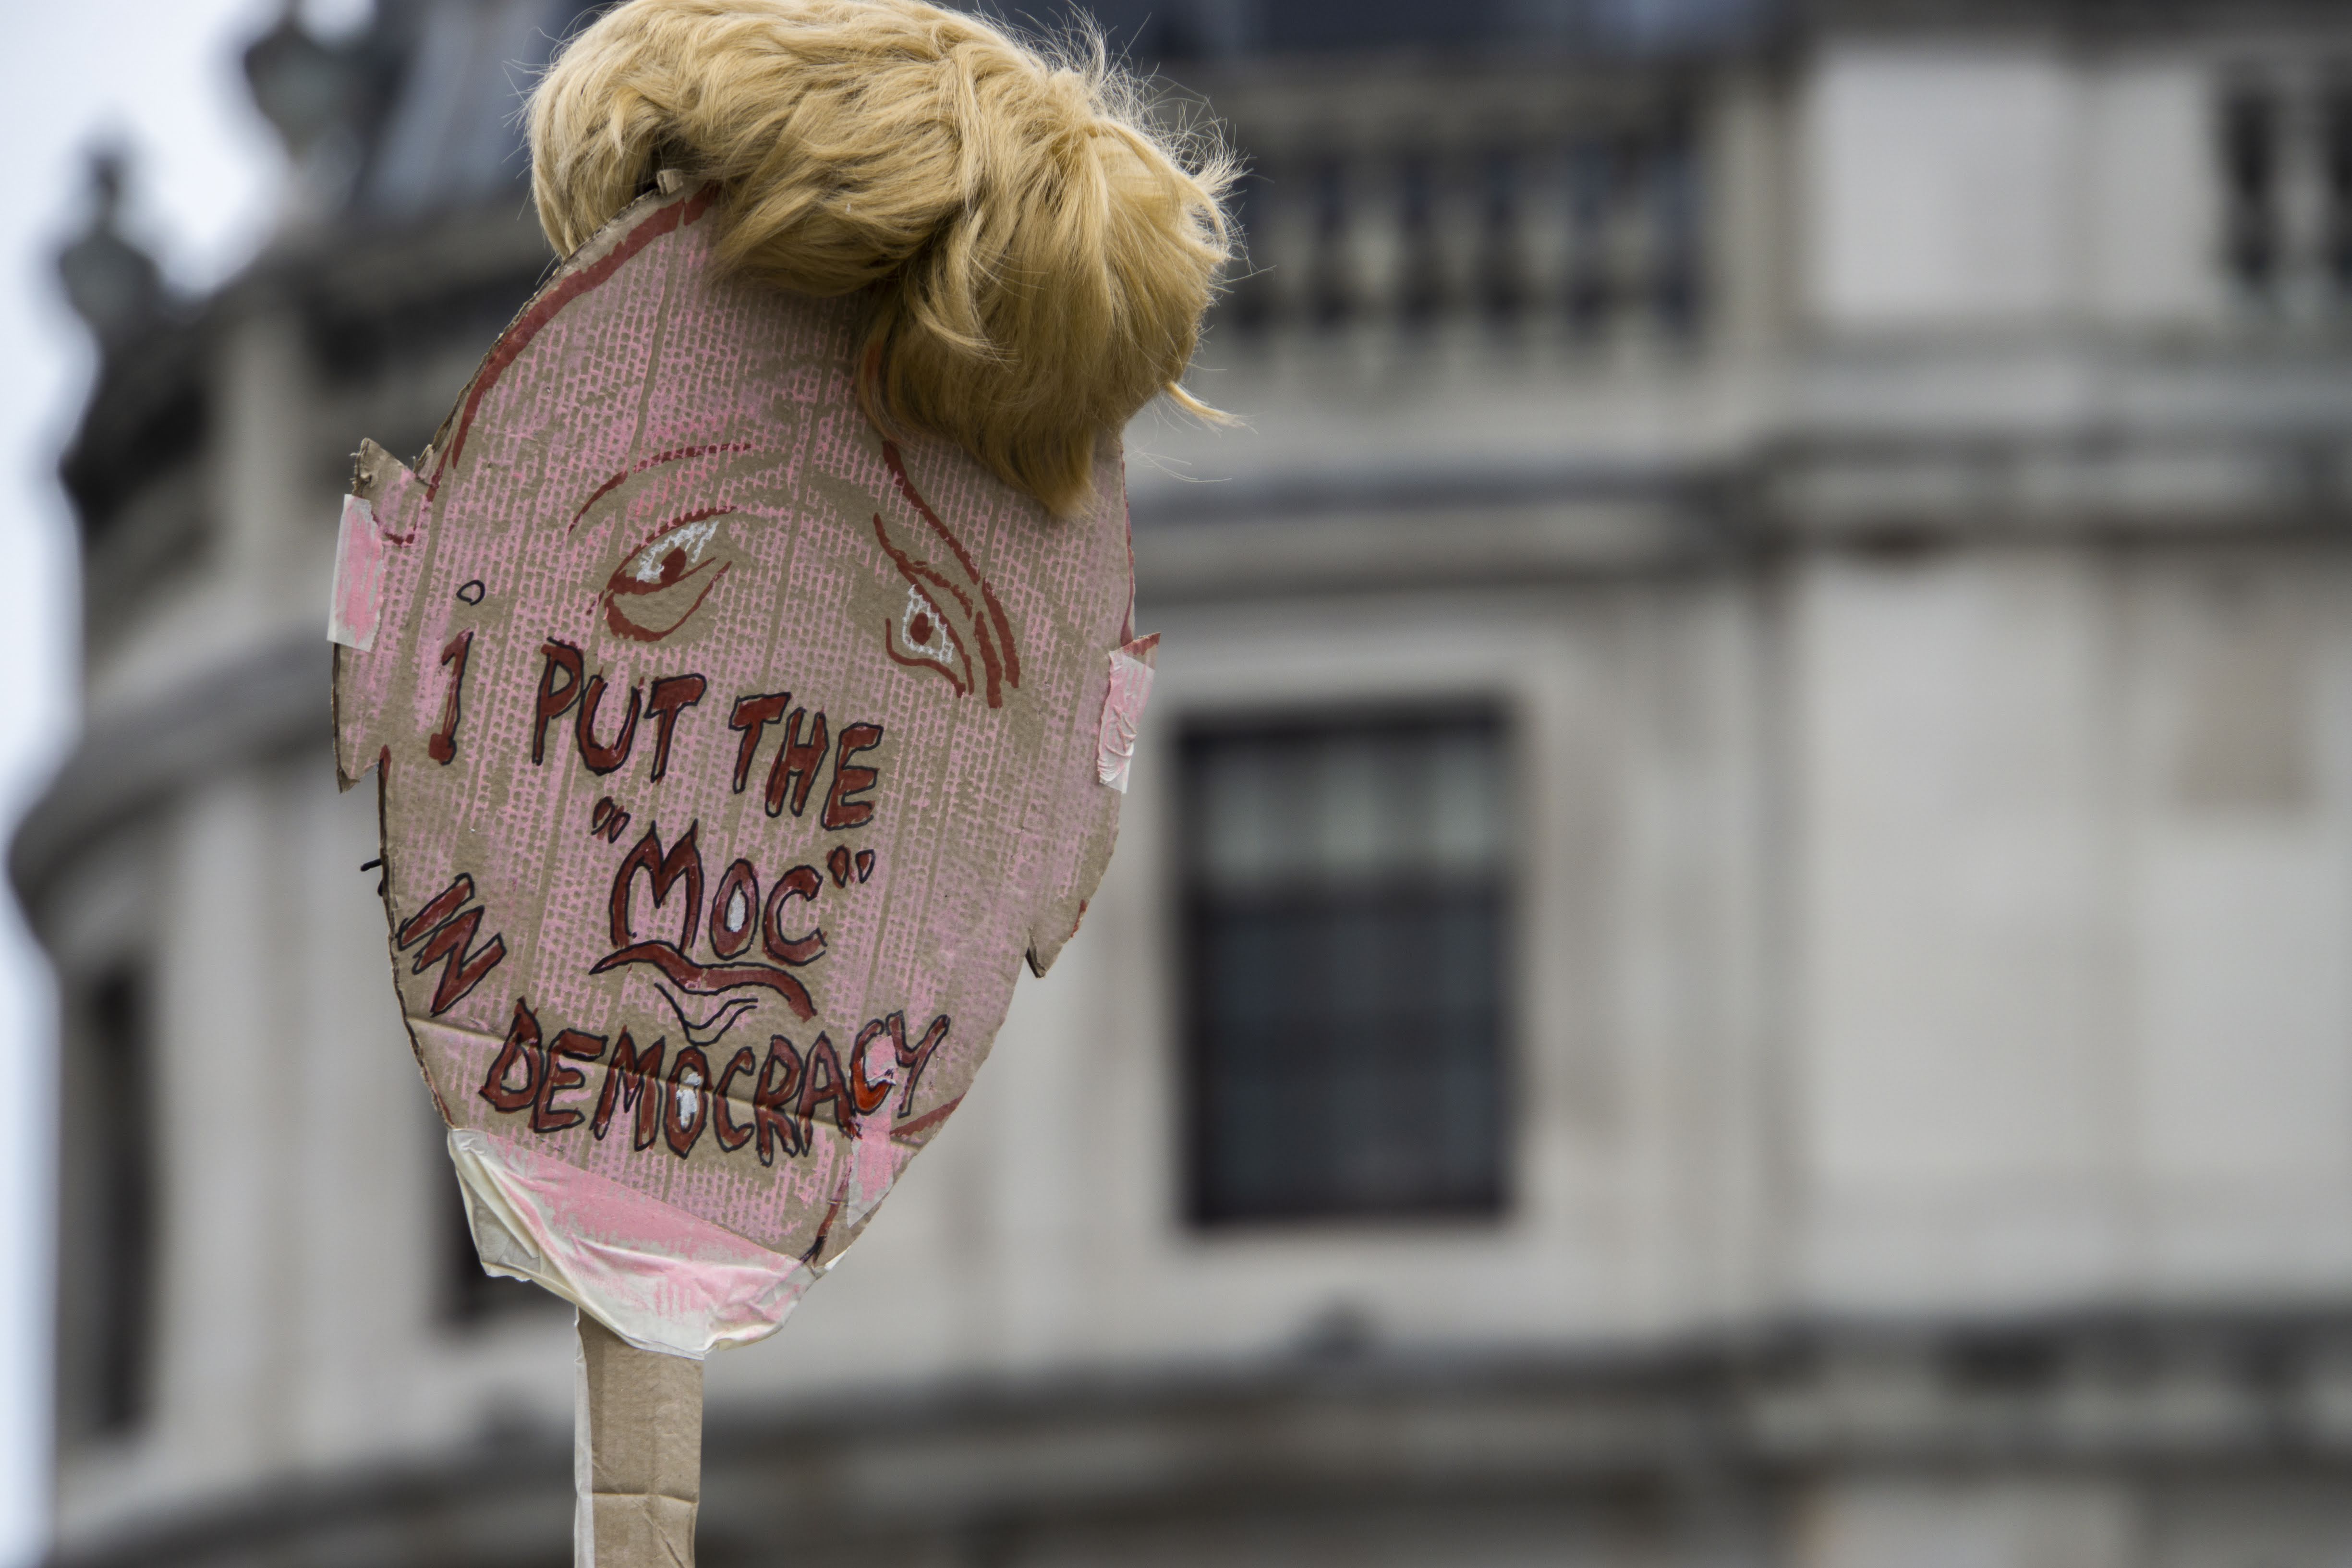 I PUT THE
"MOC"
IN
DEMOCRACY